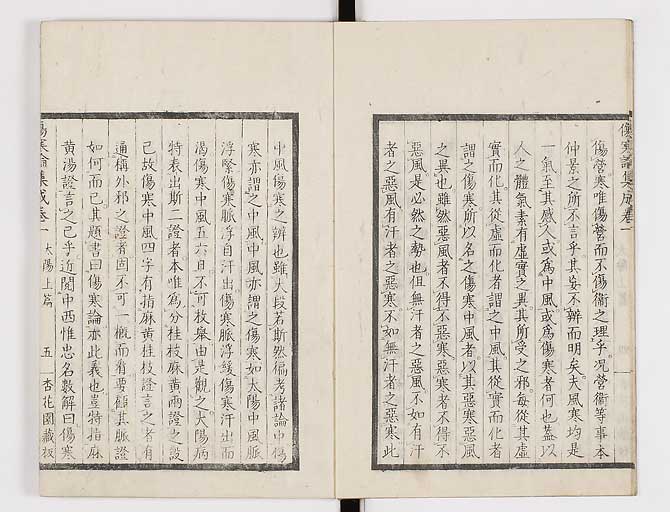 傷寒論集成卷一
傷營寒唯傷營而不傷衞之理乎。況營衞等事本
仲景之所不言乎其妄不辨而明矣夫風寒均是
一氣至其感人或爲中風或爲傷寒者何也蓋以
人之體氣素有虛實之異其所受之邪每從其虛
實而化其從虛而化者謂之中風其從實而化者
謂之傷寒所以名之傷寒中風者以其惡寒惡風
之異也雖然惡風者不得不惡寒惡寒者不得不
惡風是必然之勢也但無汗者之惡風不如有汗
者之惡風有汗者之惡寒不如無汗者之惡寒此
中風傷寒之辨也雖大段若斯然徧考諸論中傷
寒亦謂之中風中風亦謂之傷寒如太陽中風脈
浮緊傷寒脈浮自汗出傷寒脈浮緩傷寒汗出而
渴傷寒中風五六日不可枚舉由是觀之太陽病
特表出斯二證者本唯爲分桂枝麻黃兩證之設
已故傷寒中風四字有指麻黃桂枝證言之者有
通稱外邪之證者固不可一概而看要顧其脈證
如何而已其題書曰傷寒論亦此義也豈特指麻
黃湯證言之已乎近閱中西惟忠名數解曰傷寒
傷寒論集成卷一 太陽上篇 五 杏花園藏板